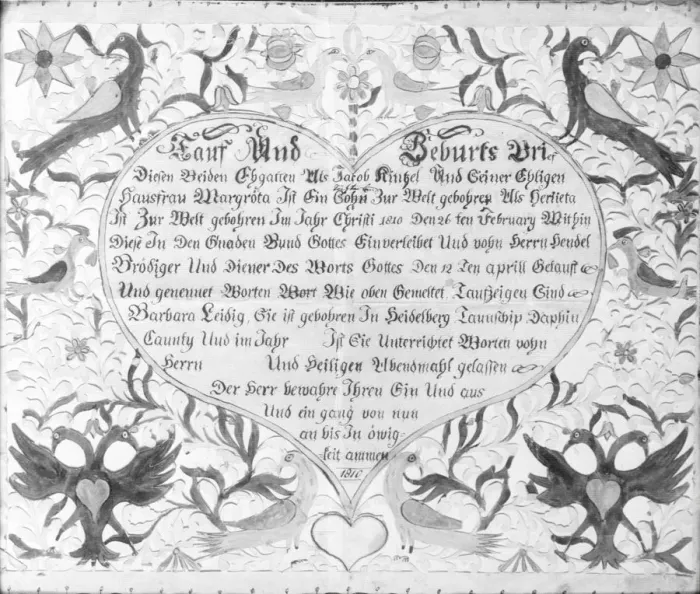 Tauf Und Geburts Brief
Diesen Beiden Ehgatten Als Jacob Kintzel Und Seiner Ehligen
Hausfrau Margröta Ist Ein Sohn Zur Welt gebohren Als Herlieta
Ist Zur Welt gebohren Im Jahr Christi 1810 Den 26 ten February Within
Diese In Den Gnaden Bund Gottes Einverleibet Und vohn Herrn Hendel
Brödiger Und Diener Des Worts Gottes Den 12 Ten aprill Getauft
Und genennet Worten Wort Wie oben Gemeltet Taufzeigen Sind
Barbara Leidig, Sie ist gebohren In Heidelberg Taunschip Daphin
Caunty Und im Jahr Ist Sie Unterrichtet Worten vohn
Herrn Und Heiligen Abendmahl gelassen
Der Herr bewahre Ihren Ein Und aus
Und ein gang von nun
an bis In öwig
keit ammen
1810